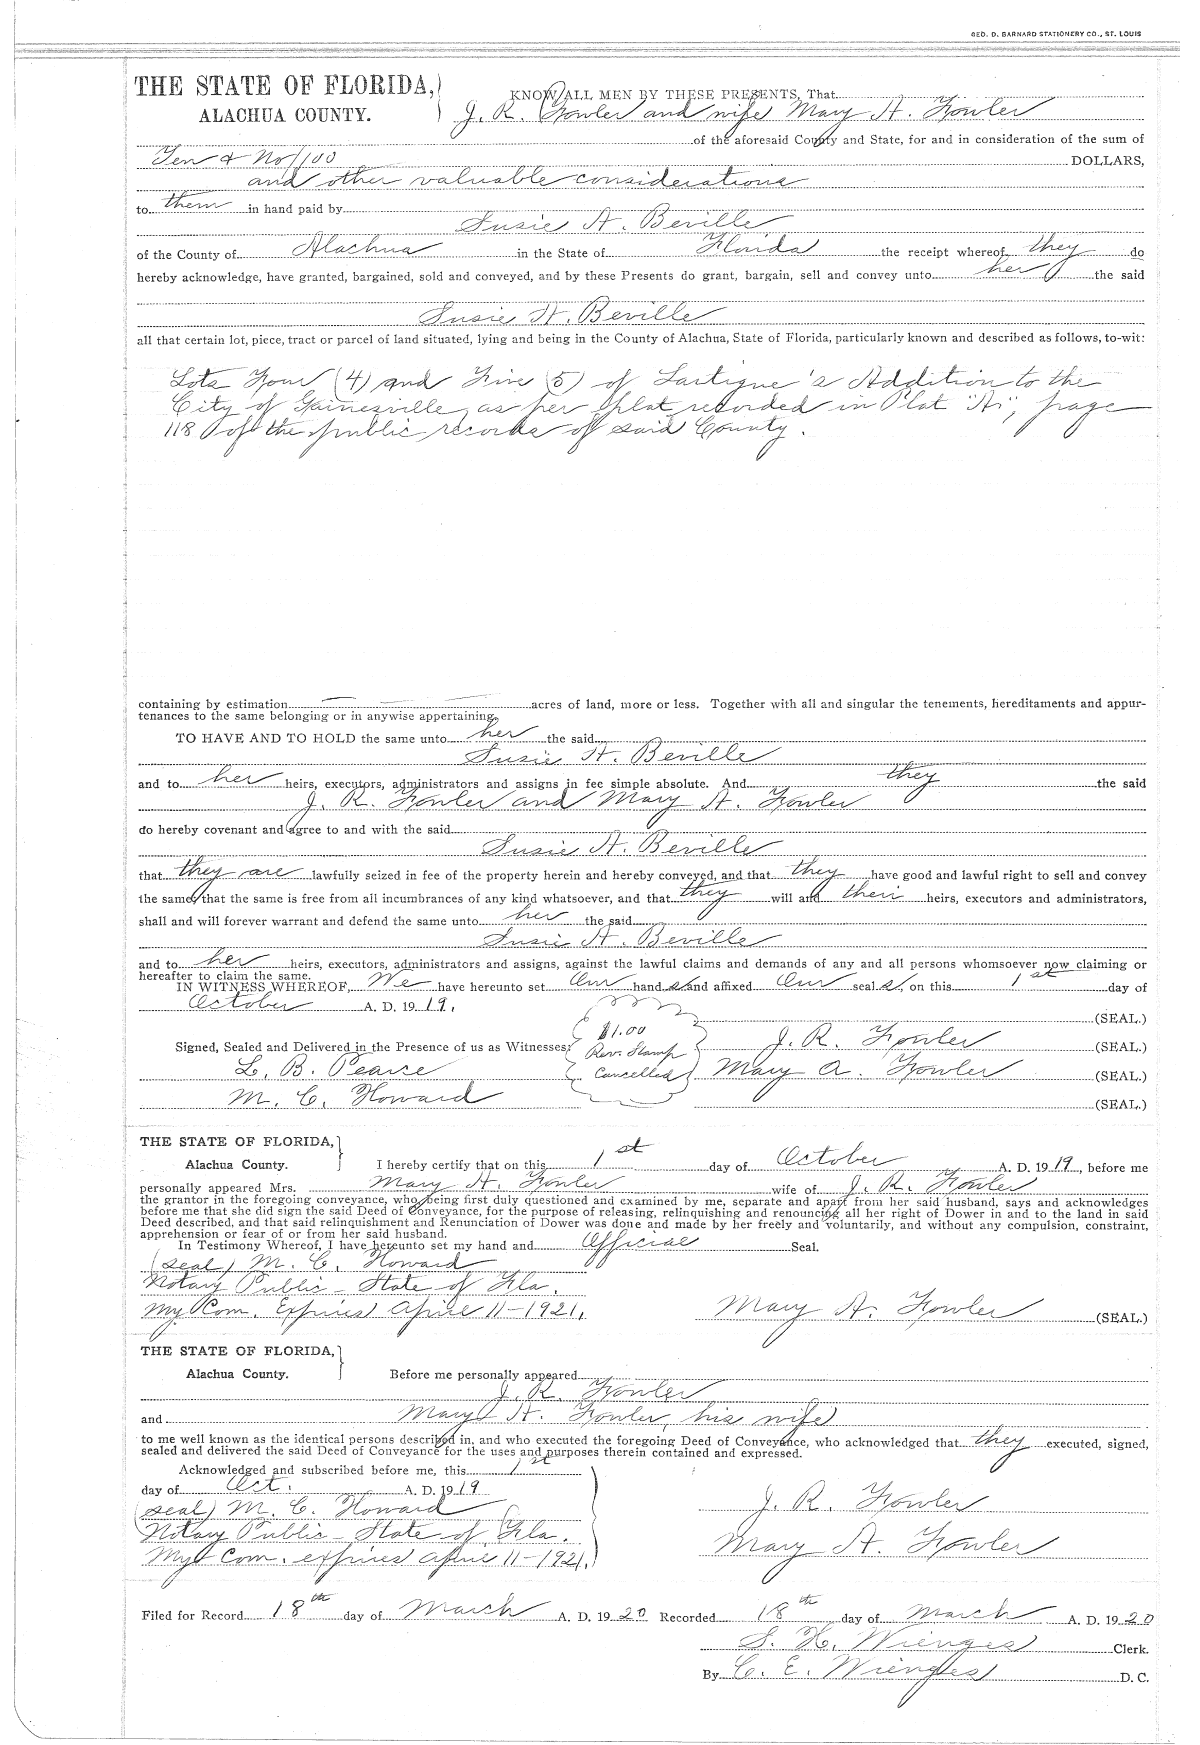 GEO. D. BARNARD STATIONERY CO., ST. LOUIS
THE STATE OF FLORIDA,
ALACHUA COUNTY.
KNOW ALL MEN BY THESE PRESENTS, That
J. R. Fowler and wife Mary A. Fowler
of the aforesaid County and State, for and in consideration of the sum of
Ten & No/100 DOLLARS,
and other valuable considerations
to them in hand paid by
Susie A. Beville
of the County of Alachua in the State of Florida the receipt whereof they do
hereby acknowledge, have granted, bargained, sold and conveyed, and by these Presents do grant, bargain, sell and convey unto her the said
Susie A. Beville
all that certain lot, piece, tract or parcel of land situated, lying and being in the County of Alachua, State of Florida, particularly known and described as follows, to-wit:
Lots Four (4) and Five (5) of Lartigue's Addition to the
City of Gainesville, as per plat recorded in Plat "A", page
118 of the public records of said County.
containing by estimation acres of land, more or less. Together with all and singular the tenements, hereditaments and appur-
tenances to the same belonging or in anywise appertaining.
TO HAVE AND TO HOLD the same unto her the said
Susie A. Beville
and to her heirs, executors, administrators and assigns in fee simple absolute. And they the said
J. R. Fowler and Mary A. Fowler
do hereby covenant and agree to and with the said
Susie A. Beville
that they are lawfully seized in fee of the property herein and hereby conveyed, and that they have good and lawful right to sell and convey
the same; that the same is free from all incumbrances of any kind whatsoever, and that they will and their heirs, executors and administrators,
shall and will forever warrant and defend the same unto her the said
Susie A. Beville
and to her heirs, executors, administrators and assigns, against the lawful claims and demands of any and all persons whomsoever now claiming or
hereafter to claim the same.
IN WITNESS WHEREOF, We have hereunto set Our hand s and affixed Our seal s, on this 1st day of
October A. D. 1919.
(SEAL.)
Signed, Sealed and Delivered in the Presence of us as Witnesses: $1.00 J. R. Fowler (SEAL.)
L. B. Pearce Rev. Stamp Cancelled Mary A. Fowler (SEAL.)
M. C. Howard (SEAL.)
THE STATE OF FLORIDA,
Alachua County. I hereby certify that on this 1st day of October A. D. 1919, before me
personally appeared Mrs. Mary A. Fowler wife of J. R. Fowler
the grantor in the foregoing conveyance, who being first duly questioned and examined by me, separate and apart from her said husband, says and acknowledges
before me that she did sign the said Deed of Conveyance, for the purpose of releasing, relinquishing and renouncing all her right of Dower in and to the land in said
Deed described, and that said relinquishment and Renunciation of Dower was done and made by her freely and voluntarily, and without any compulsion, constraint,
apprehension or fear of or from her said husband.
In Testimony Whereof, I have hereunto set my hand and Official Seal.
(seal) M. C. Howard
Notary Public - State of Fla.
My Com. Expires April 11-1921. Mary A. Fowler (SEAL.)
THE STATE OF FLORIDA,
Alachua County. Before me personally appeared
J. R. Fowler
and Mary A. Fowler, his wife
to me well known as the identical persons described in, and who executed the foregoing Deed of Conveyance, who acknowledged that they executed, signed,
sealed and delivered the said Deed of Conveyance for the uses and purposes therein contained and expressed.
Acknowledged and subscribed before me, this 1st
day of Oct. A. D. 1919
(seal) M. C. Howard J. R. Fowler
Notary Public - State of Fla.
My Com. expires April 11-1921. Mary A. Fowler
Filed for Record 18th day of March A. D. 1920 Recorded 18th day of March A. D. 1920
S. H. Wienges Clerk.
By C. E. Wienges D. C.